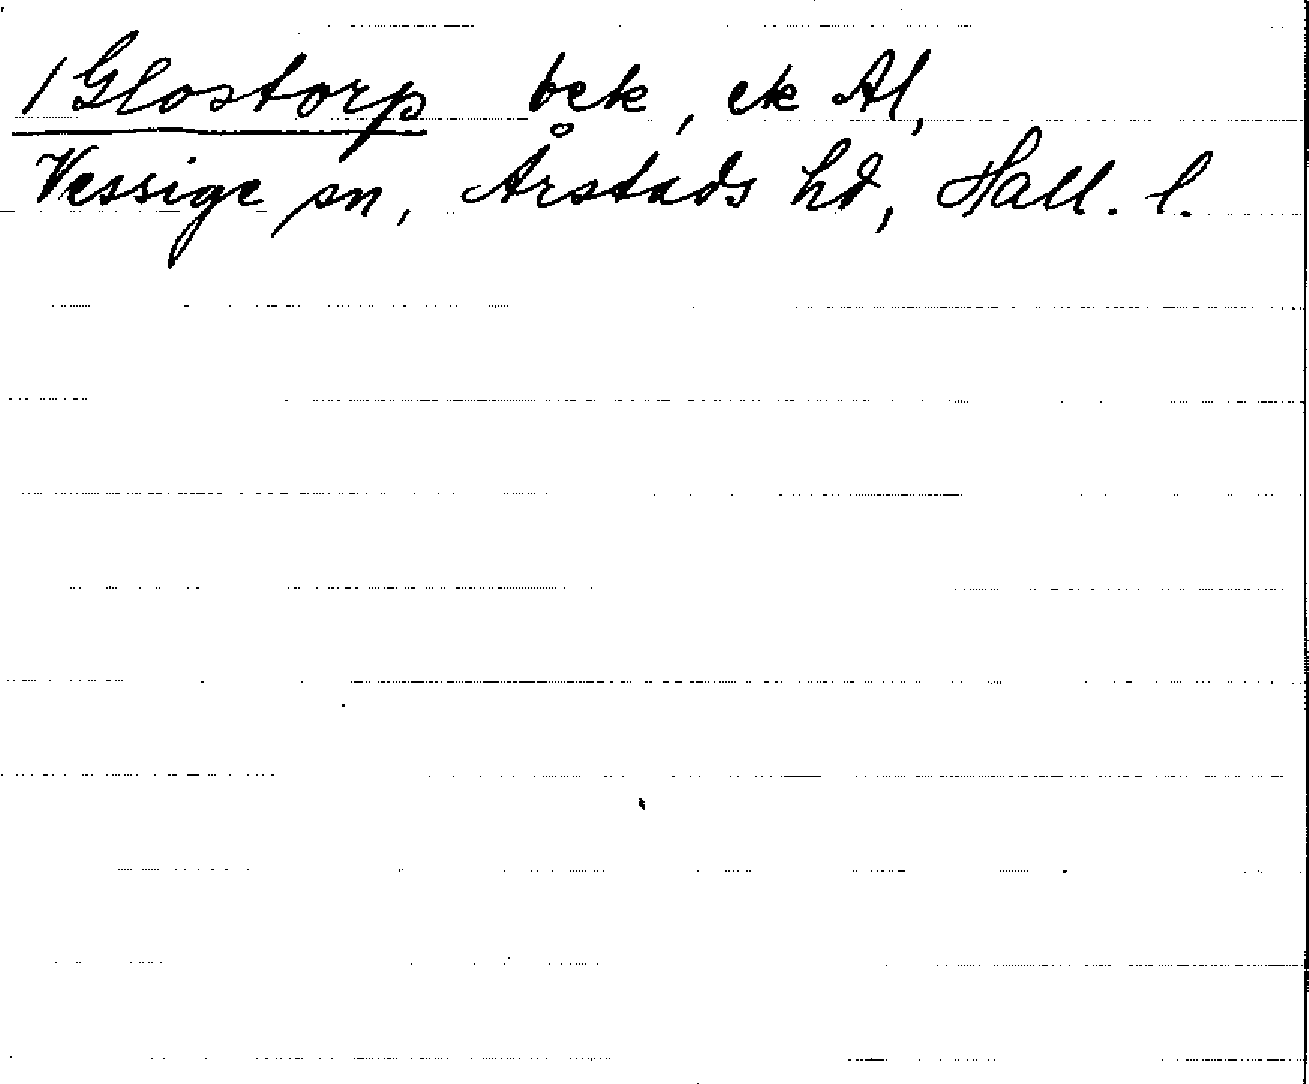 /Glostorp bek, ek Al,
Vessige sn, Årstads hd, Hall. l.